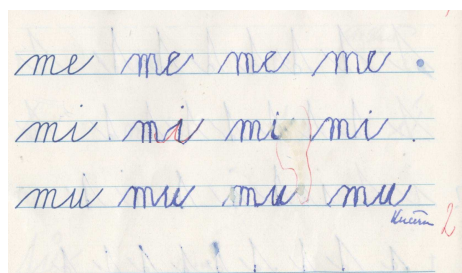 me me me me .
mi mi mi mi .
mu mu mu mu
2